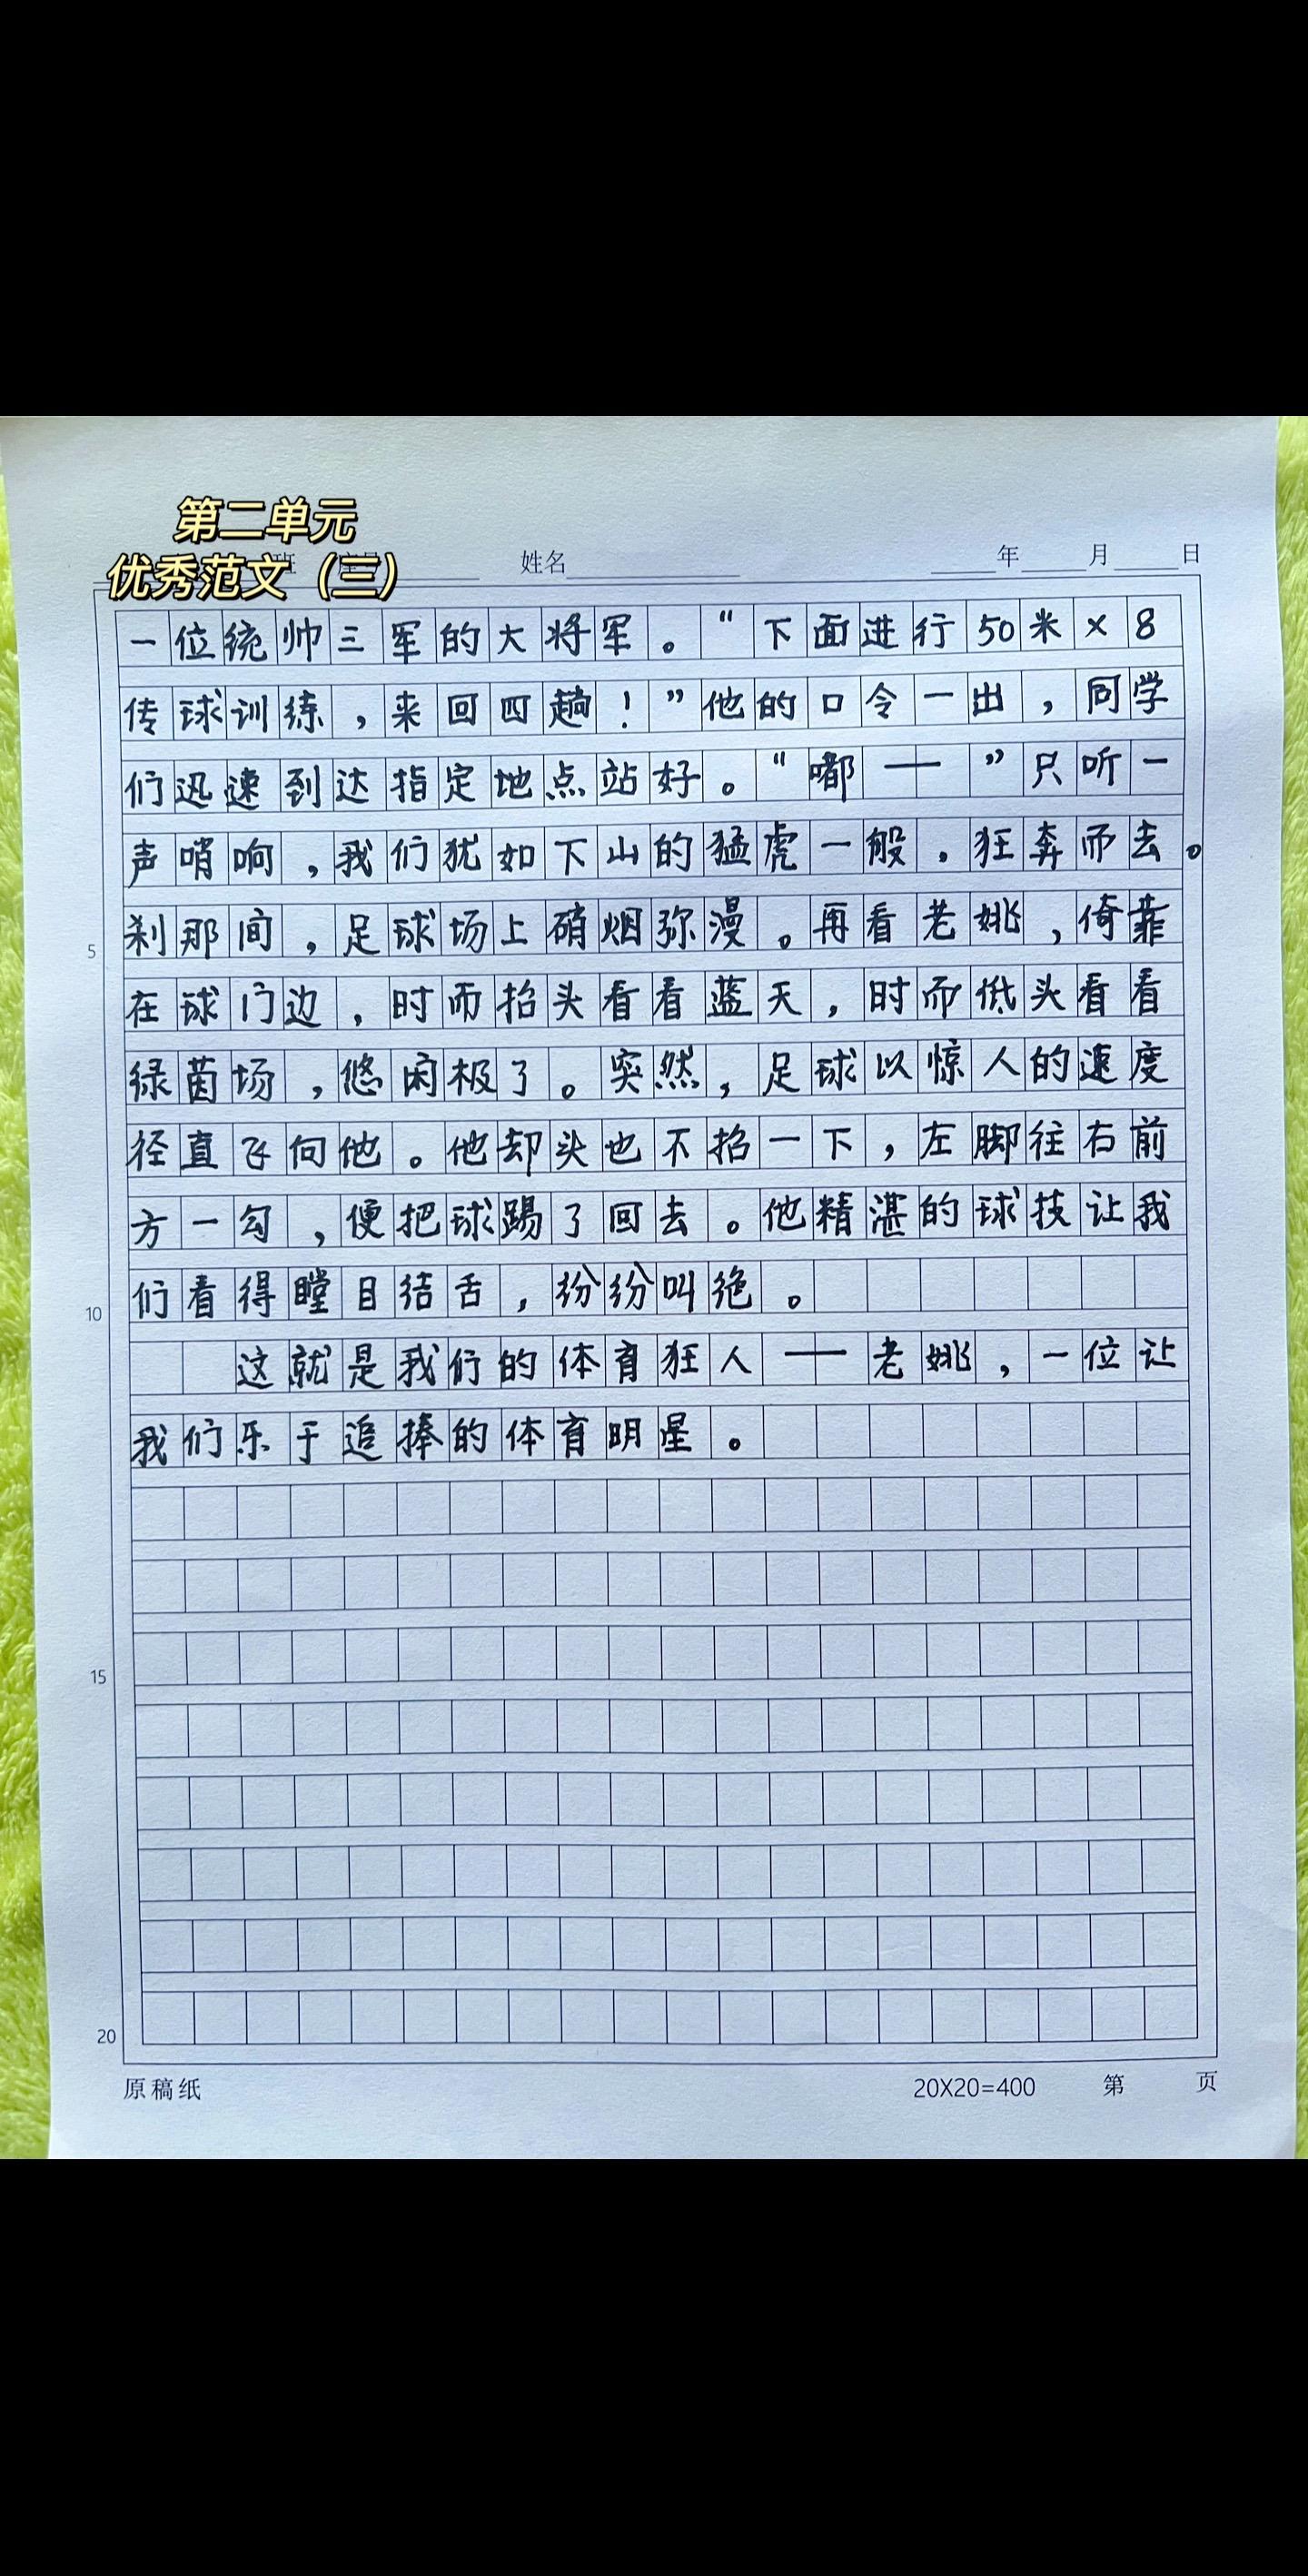 第二单元
优秀范文（三）
班
姓名 年 月 日
一位统帅三军的大将军。“下面进行50米×8
传球训练，来回四趟！”他的口令一出，同学
们迅速到达指定地点站好。“嘟——”只听一
声哨响，我们犹如下山的猛虎一般，狂奔而去。
刹那间，足球场上硝烟弥漫。再看老姚，倚靠
5
在球门边，时而抬头看看蓝天，时而低头看看
绿茵场，悠闲极了。突然，足球以惊人的速度
径直飞向他。他却头也不抬一下，左脚往右前
方一勾，便把球踢了回去。他精湛的球技让我
们看得瞠目结舌，纷纷叫绝。
10
这就是我们的体育狂人——老姚，一位让
我们乐于追捧的体育明星。
15
20
原稿纸 20X20=400 第 页